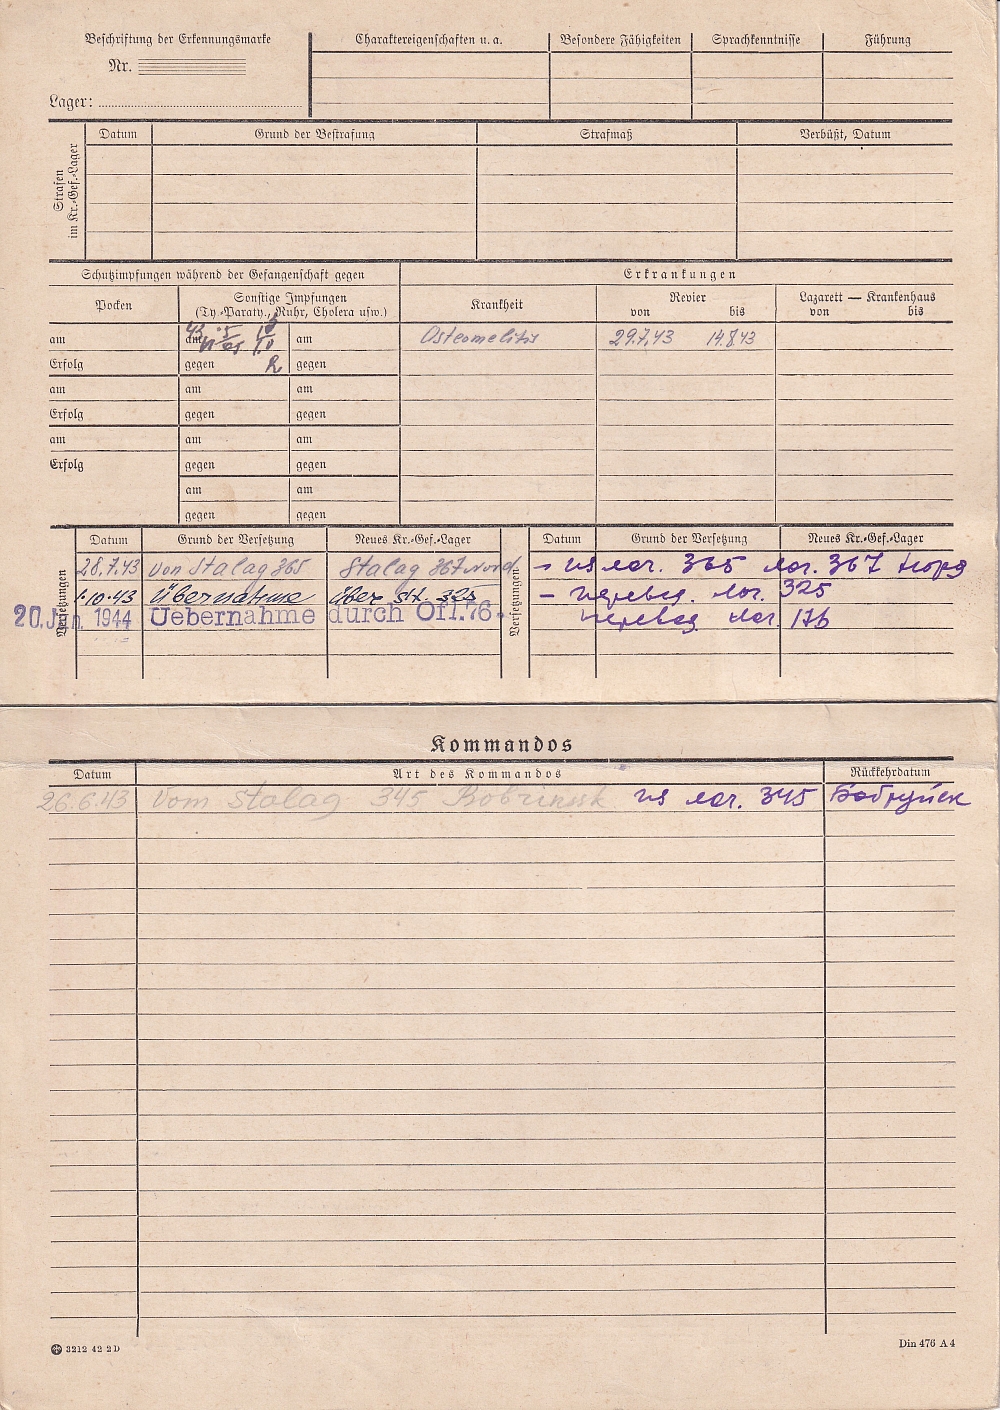 Beschriftung der Erkennungsmarke
Nr.
Lager:
Charaktereigenschaften u. a.
Besondere Fähigkeiten
Sprachkenntnisse
Führung
Strafen im Kr.-Gef.-Lager
Datum
Grund der Bestrafung
Strafmaß
Verbüßt, Datum
Schutzimpfungen während der Gefangenschaft gegen
Erkrankungen
Pocken
Sonstige Impfungen
(Ty.-Paraty., Ruhr, Cholera usw.)
Krankheit
Revier
von bis
Lazarett — Krankenhaus
von bis
am am am Osteomelitis 29.7.43 14.8.43
Erfolg gegen gegen
am am am
Erfolg gegen gegen
am am am
Erfolg gegen gegen
am am
gegen gegen
Versetzungen
Datum Grund der Versetzung Neues Kr.-Gef.-Lager
28.7.43 von Stalag 365 Stalag 367 Nord
1.10.43 Übernahme über St. 325
20. Jan. 1944 Uebernahme durch Ofl.76
Versetzungen
Datum Grund der Versetzung Neues Kr.-Gef.-Lager
- из лаг. 365 лаг. 367 норд
- перевед. лаг. 325
перевед лаг. 176
Kommandos
Datum Art des Kommandos Rückkehrdatum
26.6.43 Vom Stalag 345 Bobrinsk из лаг. 345 Бобруйск
3212 42 2 D
Din 476 A 4